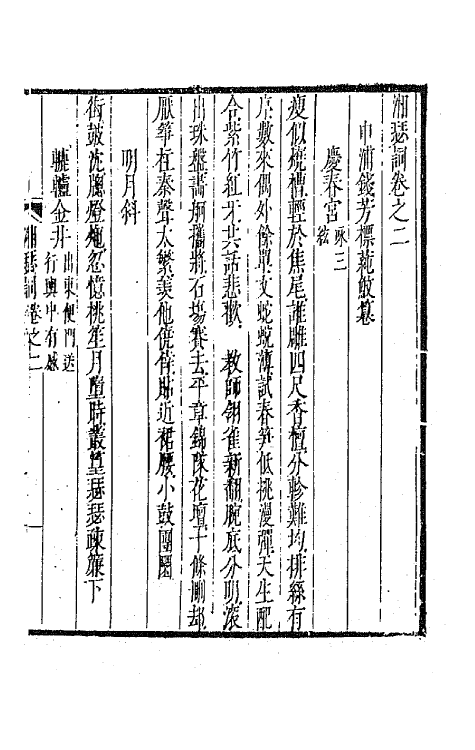 湘瑟詞卷之二
申浦錢芳標葆馚纂
慶春宮 咏三絃
瘦似槐槽輕於焦尾誰雕四尺香檀分軫難均排絲有
序數來偶外餘單文蛇蛻薄試春笋低挑漫彈天生配
合紫竹紅牙共話悲歡　教師翎雀新翻腕底分明滚
出珠盤畵舸攜將石場賽去平章錦隊花壇十條刪却
厭箏柱秦聲太繁羡他傍偎貼近裙腰小鼓團圞
明月斜
街鼓沈膓燈灺忽憶桃笙月墮時叢篁瑟瑟疎簾下
轆轤金井 出東便門送行輿中有感
湘瑟詞卷之二